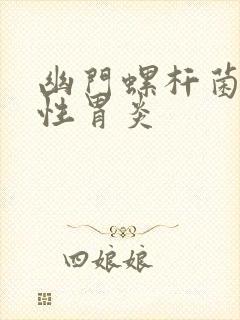 幽門螺杆菌
性胃炎
四娘娘